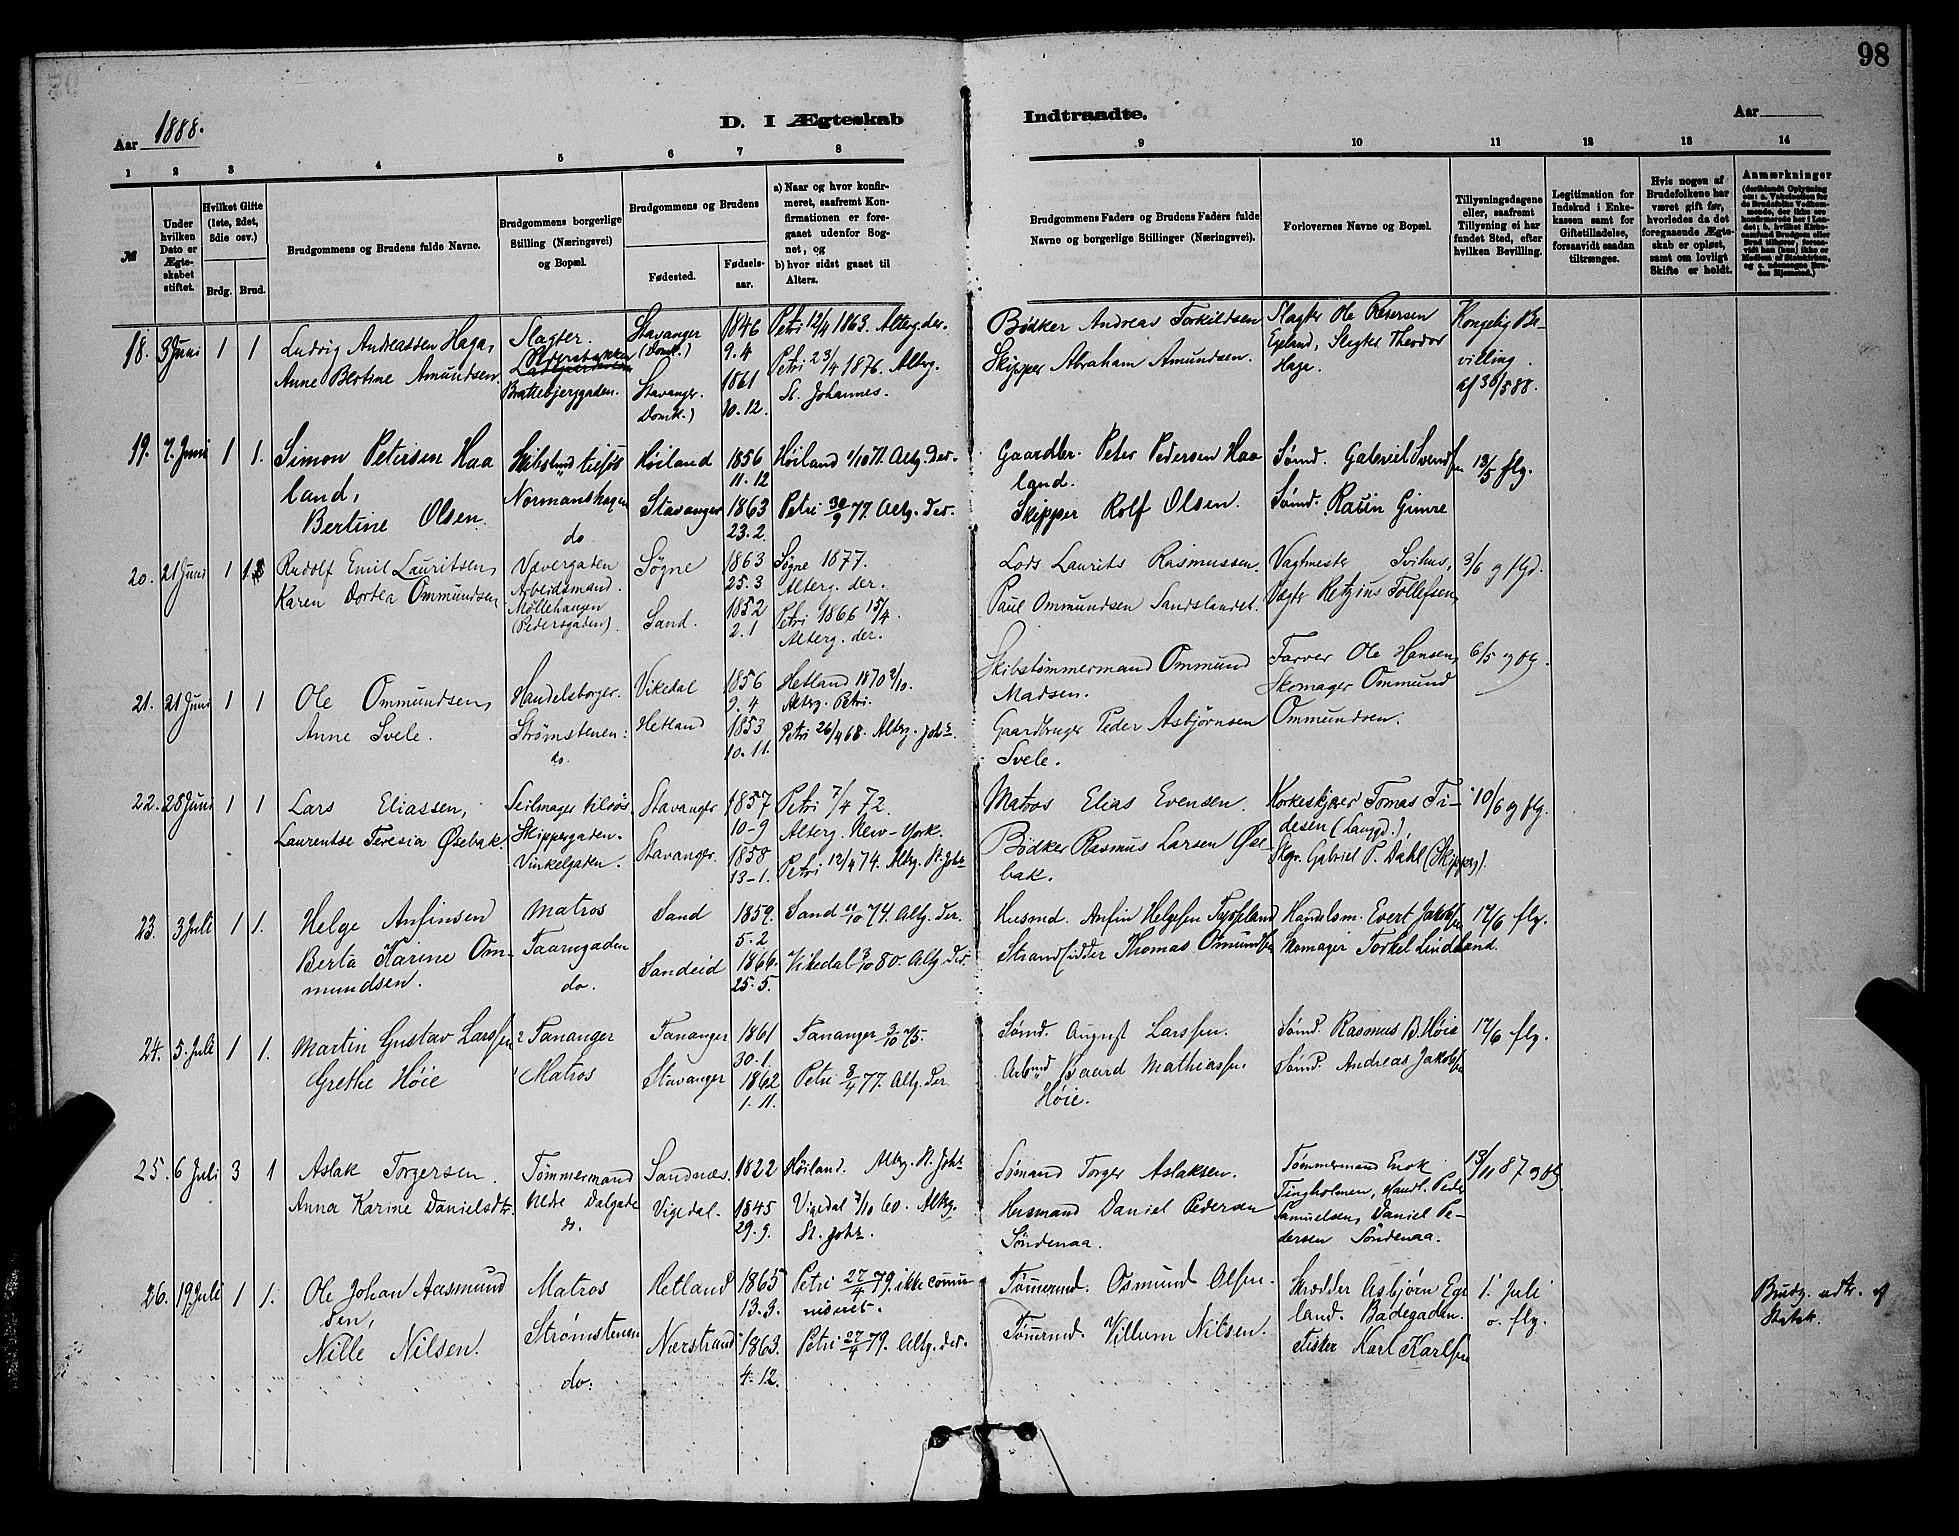 98
Aar 1888.
D. I Ægteskab
Indtraadte.
Aar
1 2 3 4 5 6 7 8
9 10 11 12 13 14
№
Under hvilken Dato er Ægteskabet stiftet.
Hvilket Gifte (1ste, 2det, 3die osv.)
Brdg. Brud.
Brudgommens og Brudens fulde Navne.
Brudgommens borgerlige Stilling (Næringsvei) og Bopæl.
Brudgommens og Brudens
Fødested.
Fødselsaar.
a) Naar og hvor konfirmeret, saafremt Konfirmationen er foregaaet udenfor Sognet, og
b) hvor sidst gaaet til Alters.
Brudgommens Faders og Brudens Faders fulde Navne og borgerlige Stillinger (Næringsvei).
Forlovernes Navne og Bopæl.
Tillysningsdagene eller, saafremt Tillysning ei har fundet Sted, efter hvilken Bevilling.
Legitimation for Indskud i Enkekassen samt for Giftetilladelse, forsaavidt saadan tiltrænges.
Hvis nogen af Brudefolkene har været gift før, hvorledes da det foregaaende Ægteskab er opløst, samt om lovligt Skifte er holdt.
Anmærkninger
18. 3 Juni 1 1
Ludvig Andreassen Haga,
Anne Bertine Amundsen
Slagter.
Brattebjerggaden.
Stavanger
(Domk.)
Stavanger.
Domk.)
1846
9.4
1861
10.12.
Petri 12/4 1863. Alterg. der.
Petri 23/4 1876. Alterg.
St. Johannes.
Bødker Andreas Torkildsen
Skipper Abraham Amundsen.
Slagter Ole Petersen
Egeland, Slagter Theodor
Haga.
Kongelig Be-
villing
af 30/5 88.
19. 7. Juni 1 1.
Simon Petersen Haa
land,
Bertine Olsen.
Skibstmd tilsøs
Normanshagen
do
Høiland
Stavanger
1856
11.12
1863
23.2.
Høiland 1/10 71. Altg. der.
Petri 30/9 77. Altg. der.
Gaardbr. Peter Pedersen Haa
land.
Skipper Rolf Olsen.
Sømd. Gabriel Svendsen
Sømd. Rasin Gimre
13/5 flg.
20. 21 Juni 1 1
Rudolf Emil Lauritsen,
Karen Dortea Ommundsen,
Vævergaden
Arbeidsmand.
Møllehaugen
Pedersgaden).
Søgne
Sand.
1863
25.3
1852
2.1
Søgne 1877.
Alterg. der.
Petri 1866 15/4.
Alterg. der.
Lods Laurits Rasmussen.
Paul Ommundsen Sandslandet.
Vagtmester Svihus,
Vægter Retzius Tollefsen,
3/6 og flgd.
21. 21 Juni 1 1
Ole Ommundsen,
Anne Svele.
Handelsborger.
Strømstenen.
do.
Vikedal
Hetland
1856
9.4
1853
10.11.
Hetland 1870 2/10.
Alterg. Petri.
Petri 26/4 68. Alterg. Johs.
Skibstømmermand Ommund
Madsen.
Gaardbruger Peder Asbjørnsen
Svele.
Farver Ole Hansen,
Skomager Ommund
Ommundsen.
6/5 og flg.
22. 28 Juni 1 1
Lars Eliassen,
Laurentse Teresia Øsebak.
Seilmager tilsøs
Skippergaden.
Vinkelgaden.
Stavanger
Stavanger.
1857
10-9
1858
13-1.
Petri 7/4 72.
Alterg. New-York.
Petri 12/4 74. Alterg. St. Johs
Matros Elias Evensen.
Bødker Rasmus Larsen Øse
bak.
Korkeskjærer Tomas Ti-
desen (Langgd.),
Skgr. Gabriel P. Dahl (Skipperg).
10/6 og flg.
23. 3 Juli 1 1.
Helge Anfinsen
Berta Karine Om-
mundsen.
Matros
Taarngaden
do.
Sand
Sandeid
1859.
5.2
1866.
25.5.
Sand 11/10 74. Altg. der.
Vikedal 3/10 80. Altg. der.
Husmd. Anfin Helgesen
Strandsidder Thomas Omundsen
Handelsm. Evert Jakobsen
Skomager Torkel Lindland.
17/6 flg.
24. 5. Juli 1 1.
Martin Gustav Larssen
Grethe Høie
Tananger
Matros
Tananger
Stavanger
1861
30.1.
1862
1.11.
Tananger 3/10 75.
Petri 8/4 77. Altg. der
Sømd. August Larssen.
Arbmd Baard Mathiassen
Høie.
Sømd. Rasmus B. Høie
Sømd. Andreas Jakobsen
17/6 flg.
25. 6 Juli 3 1
Aslak Torgersen.
Anna Karine Danielsdtr.
Tømmermand
Nedre Dalgade
do.
Sandnæs.
Vigedal.
1822
1845
29.9.
Høiland. Alterg. St. Johs
Vigedal 7/10 60. Alterg.
St. Johs.
Sømand Torger Aslaksen.
Husmand Daniel Pedersen
Søndenaa.
Tømmermand Enok
Tingholmen, Handl. Peder
Samuelsen, Daniel Pe-
dersen Søndenaa.
13/11 87 og flg.
26. 19 Juli 1 1.
Ole Johan Aasmund
sen,
Nille Nilsen.
Matros
Strømstenen
do.
Hetland
Nerstrand
1865
13.3.
1863.
4.12.
Petri 27/4 79. ikke commu-
niceret.
Petri 27/4 79. Altg. der.
Tømrmd. Osmund Olsen.
Tømrmd. Villum Nilsen.
Skrædder Asbjørn Ege
land. Bådegaden.
Fisker Karl Karlsen
1. Juli
o. flg.
Brudg. udtr. af
Statsk.